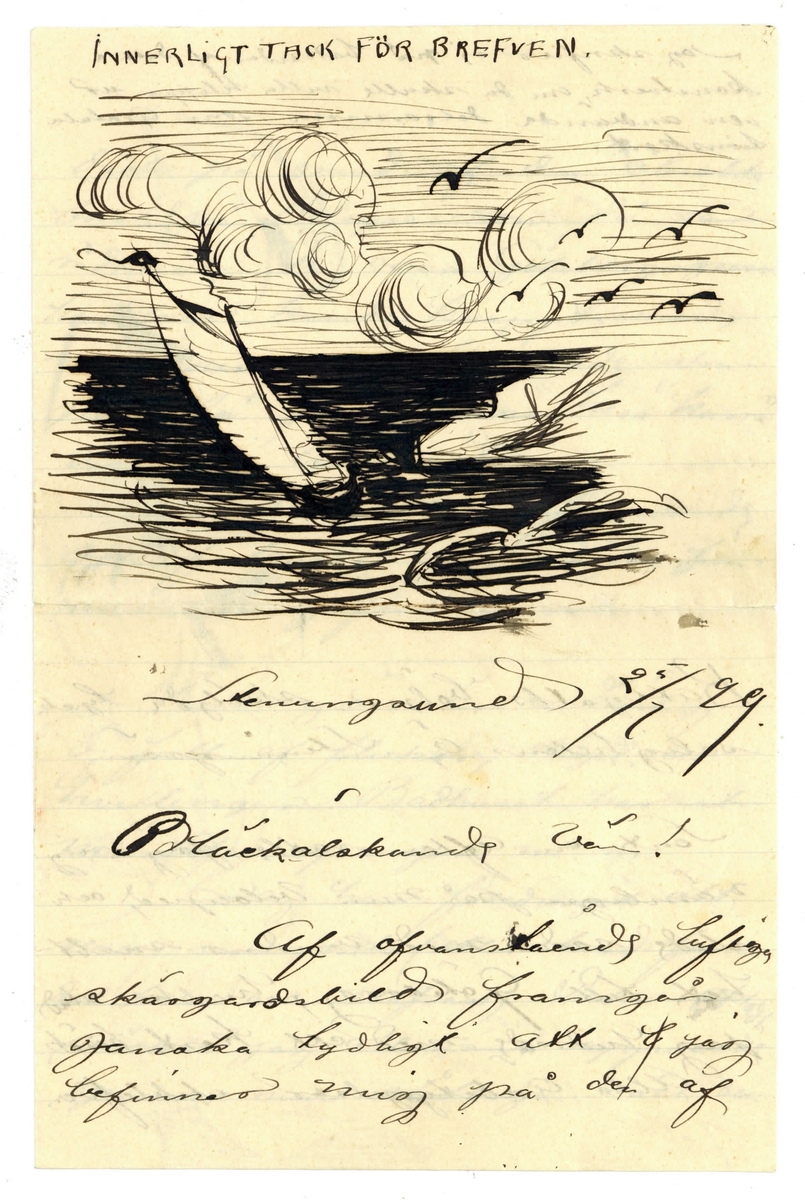 INNERLIGT TACK FÖR BREFVEN.
Stenungsund 25/7 99.
Bläckälskande Vän!
Af ofvanstående luftiga
skärgårdsbild framgår
ganska tydligt att jag
befinner mig på den af